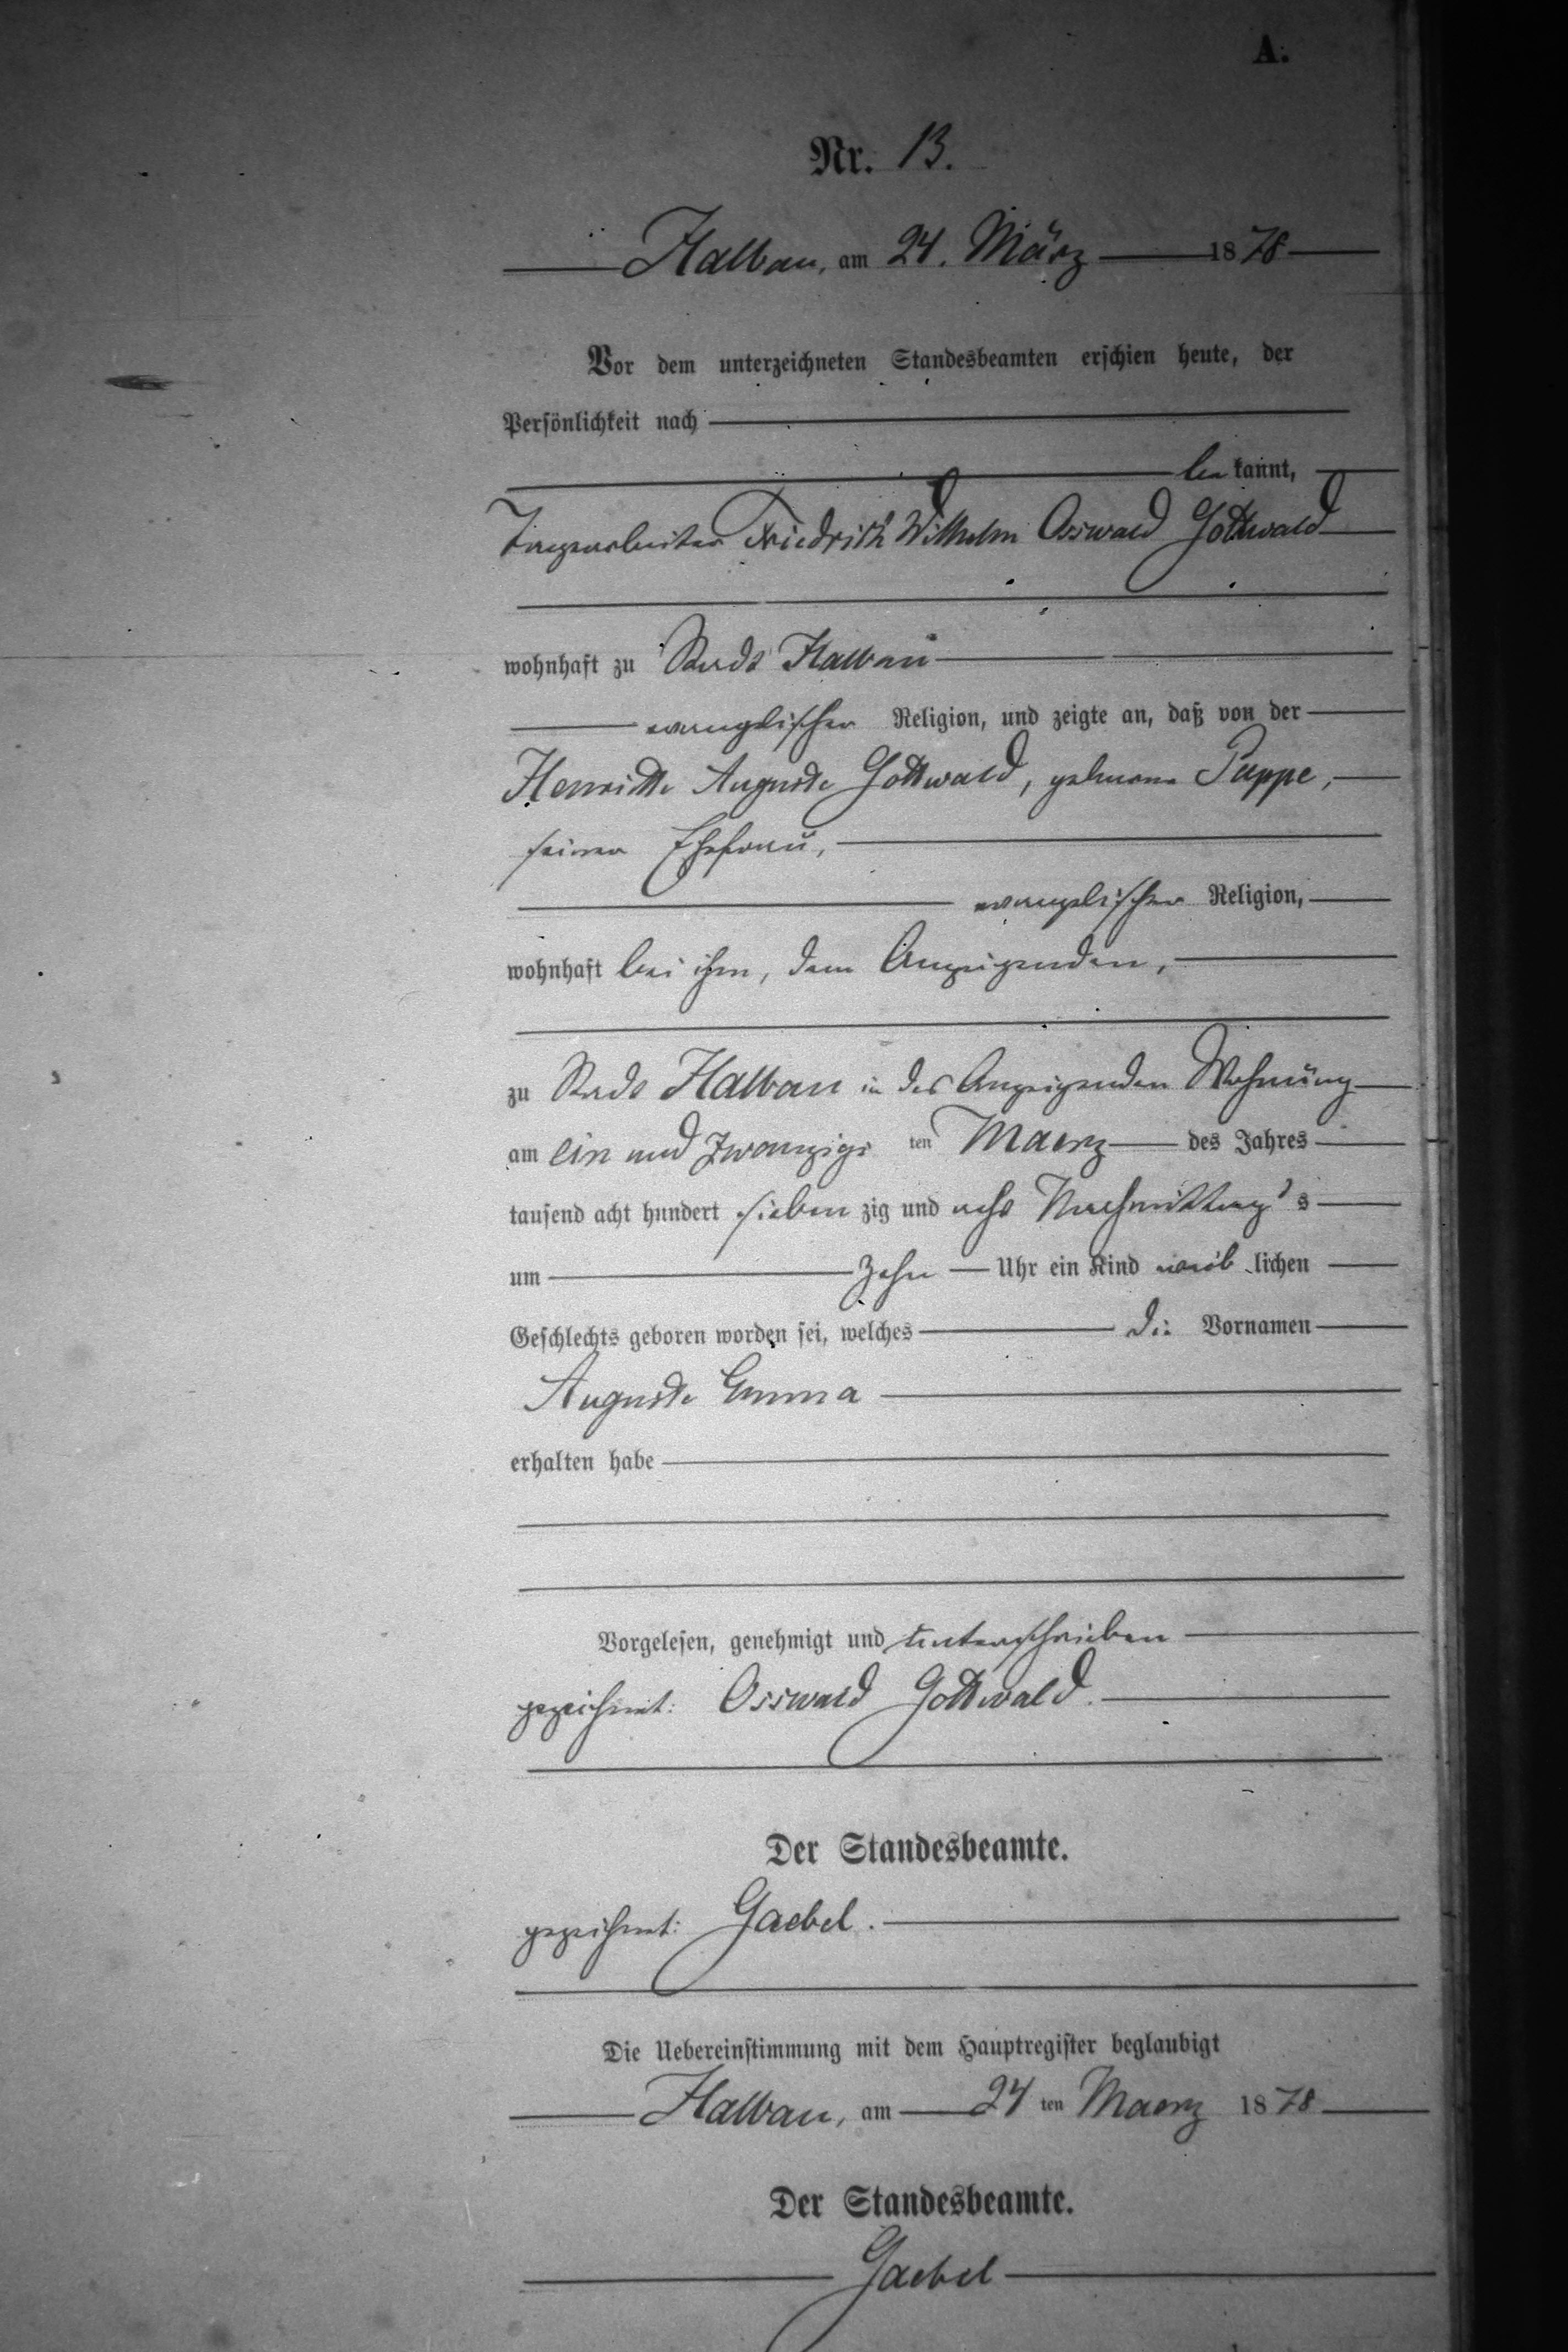 A.
Nr. 13.
Halbau, am 24. März 1878
Vor dem unterzeichneten Standesbeamten erschien heute, der
Persönlichkeit nach
be kannt,
Tagearbeiter Friedrich Wilhelm Osswald Gottwald
wohnhaft zu Stadt Halbau
evangelischer Religion, und zeigte an, daß von der
Henriette Auguste Gottwald, geborene Puppe,
seiner Ehefrau,
evangelischer Religion,
wohnhaft bei ihm, dem Anzeigenden,
zu Stadt Halbau in des Anzeigenden Wohnung
am ein und zwanzigs ten Maerz des Jahres
tausend acht hundert sieben zig und acht Nachmittag s
um zehn Uhr ein Kind weib lichen
Geschlechts geboren worden sei, welches die Vornamen
Auguste Emma
erhalten habe
Vorgelesen, genehmigt und unterschrieben
gezeichnet: Osswald Gottwald.
Der Standesbeamte.
gezeichnet: Gaebel.
Die Uebereinstimmung mit dem Hauptregister beglaubigt
Halbau, am 24 ten Maerz 1878
Der Standesbeamte.
Gaebel